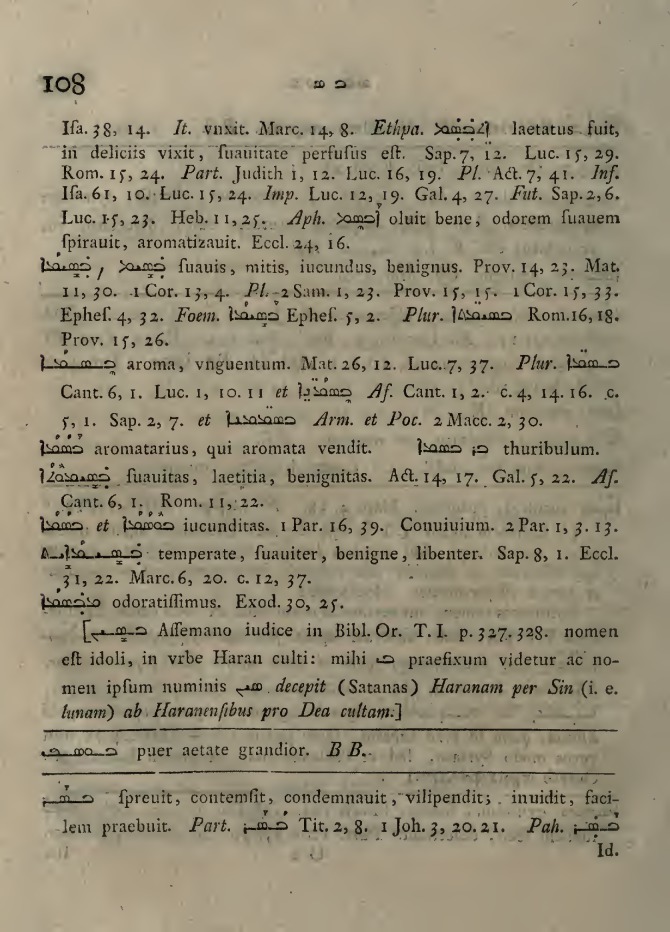 108
ܒ ܣ
Iſa. 38, 14. It. vnxit. Marc. 14, 8. Ethpa. ܐܬܒܣܡ laetatus fuit,
in deliciis vixit, ſuauitate perfuſus eſt. Sap. 7, 12. Luc. 15, 29.
Rom. 15, 24. Part. Judith 1, 12. Luc. 16, 19. Pl. Act. 7, 41. Inf.
Iſa. 61, 10. Luc. 15, 24. Imp. Luc. 12, 19. Gal. 4, 27. Fut. Sap. 2, 6.
Luc. 15, 23. Heb. 11, 25. Aph. ܐܒܣܡ oluit bene, odorem ſuauem
ſpirauit, aromatizauit. Eccl. 24, 16.
ܒܣܝܡܐ, ܒܣܝܡ ſuauis, mitis, iucundus, benignus. Prov. 14, 23. Mat.
11, 30. 1 Cor. 13, 4. Pl. 2 Sam. 1, 23. Prov. 15, 15. 1 Cor. 15, 33.
Epheſ. 4, 32. Foem. Epheſ. 5, 2. Plur. ܒܣܝܡܬܐ Rom. 16, 18.
Prov. 15, 26.
ܒܣܡܐ aroma, vnguentum. Mat. 26, 12. Luc. 7, 37. Plur. ܒܣܡܐ
Cant. 6, 1. Luc. 1, 10. 11 et Af. Cant. 1, 2. c. 4, 14. 16. c.
5, 1. Sap. 2, 7. et Arm. et Poc. 2 Macc. 2, 30.
ܒܣܡܐ aromatarius, qui aromata vendit. thuribulum.
ܒܣܝܡܘܬܐ ſuauitas, laetitia, benignitas. Act. 14, 17. Gal. 5, 22. Af.
Cant. 6, 1. Rom. 11, 22.
ܒܣܡܐ et ܒܘܣܡܐ iucunditas. 1 Par. 16, 39. Conuiuium. 2 Par. 1, 3. 13.
ܒܣܝܡܐܝܬ temperate, ſuauiter, benigne, libenter. Sap. 8, 1. Eccl.
31, 22. Marc. 6, 20. c. 12, 37.
ܡܒܣܡܐ odoratiſſimus. Exod. 30, 25.
[ܒܣܝܢ Aſſemano iudice in Bibl. Or. T. I. p. 327. 328. nomen
eſt idoli, in vrbe Haran culti: mihi ܒ praefixum videtur ac no-
men ipſum numinis ܣܝܢ decepit (Satanas) Haranam per Sin (i. e.
lunam) ab Haranenſibus pro Dea cultam.]
puer aetate grandior. B B.
ܒܣܪ ſpreuit, contemſit, condemnauit, vilipendit; inuidit, faci-
lem praebuit. Part. ܒܣܪ Tit. 2, 8. 1 Joh. 3, 20. 21. Pah. ܒܣܪ
Id.